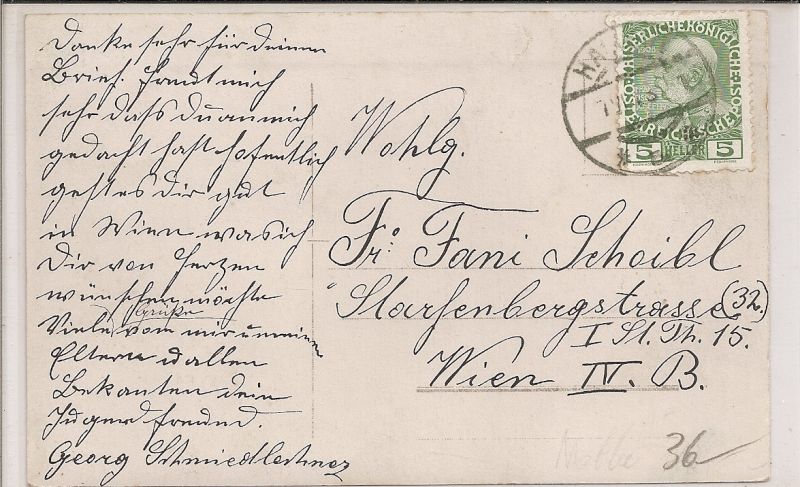 Danke sehr für deinen
Brief. freudt mich
sehr dass du an mich
gedacht hast hofentlich
gest es Dir gut
in Wien was ich
Dir von herzen
wünschen möchte
Viele Grüße von mir u meinen
Eltern u allen
Bekanten dein
Jugendfreund.
Georg Schmiedlechner
Wohlg.
Fr. Fani Schoibl
Starhenbergstrasse (32.)
I St. Th. 15.
Wien IV. B.
36
HA
KAISERLICHE KÖNIGLICHE
ÖSTERREICHISCHE
1908
5 HELLER 5